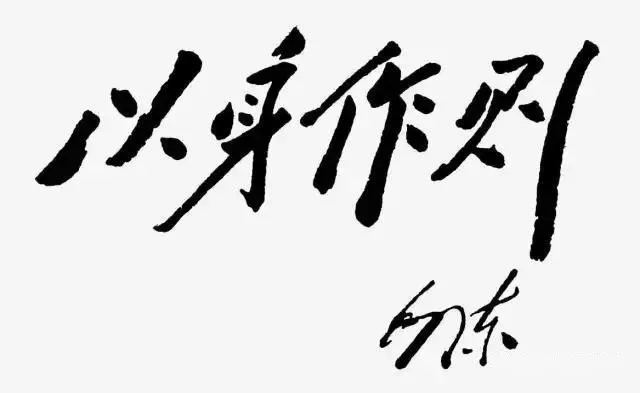 以身作则
东